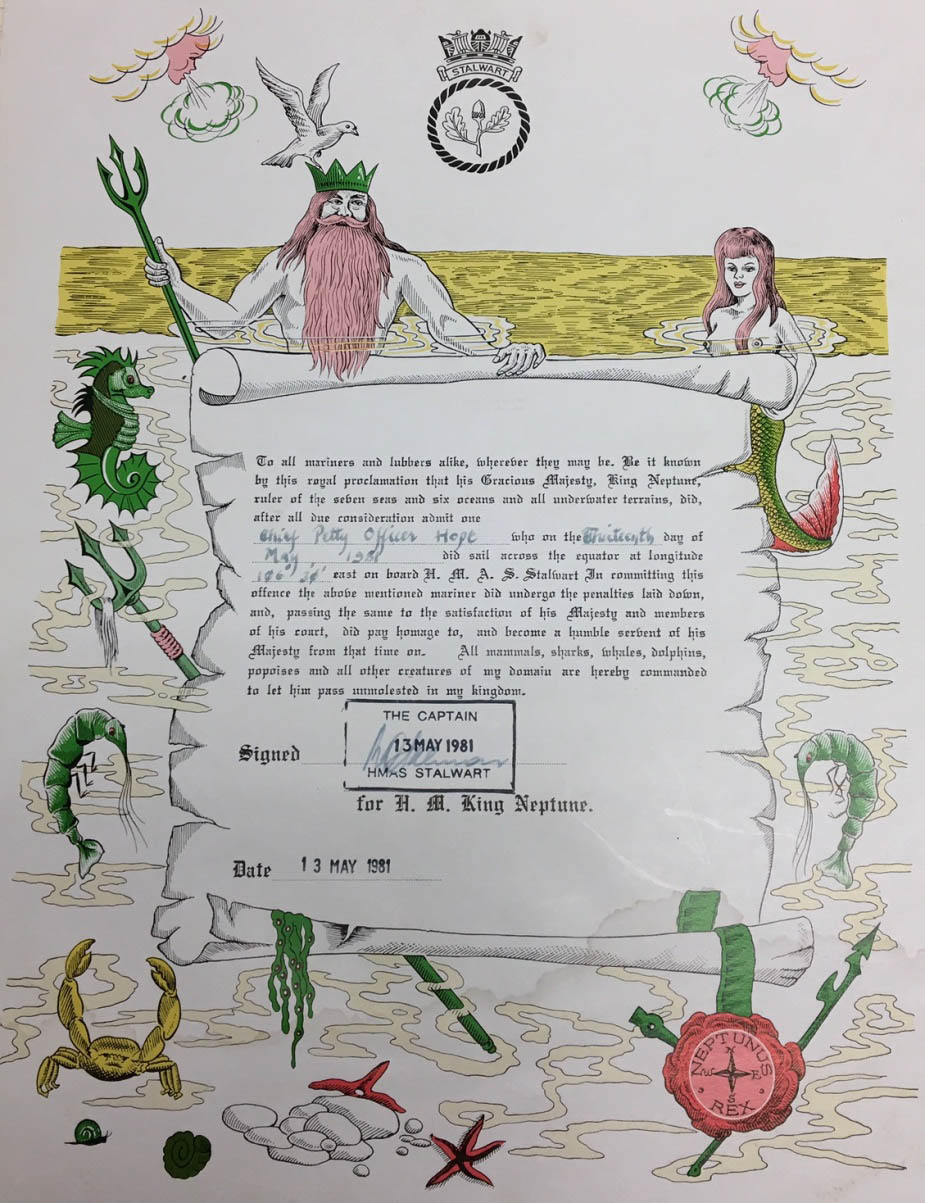 STALWART
To all mariners and lubbers alike, wherever they may be. Be it known
by this royal proclamation that his Gracious Majesty, King Neptune,
ruler of the seven seas and six oceans and all underwater terrains, did,
after all due consideration admit one
Chief Petty Officer Hope who on the Thirteenth day of
May 1981 did sail across the equator at longitude
east on board H. M. A. S. Stalwart In committing this
offence the above mentioned mariner did undergo the penalties laid down,
and, passing the same to the satisfaction of his Majesty and members
of his court, did pay homage to, and become a humble servent of his
Majesty from that time on. All mammals, sharks, whales, dolphins,
popoises and all other creatures of my domain are hereby commanded
to let him pass unmolested in my kingdom.
THE CAPTAIN
13 MAY 1981
Signed
HMAS STALWART
for H. M. King Neptune.
Date 13 MAY 1981
NEPTUNUS
N
W E
S
REX